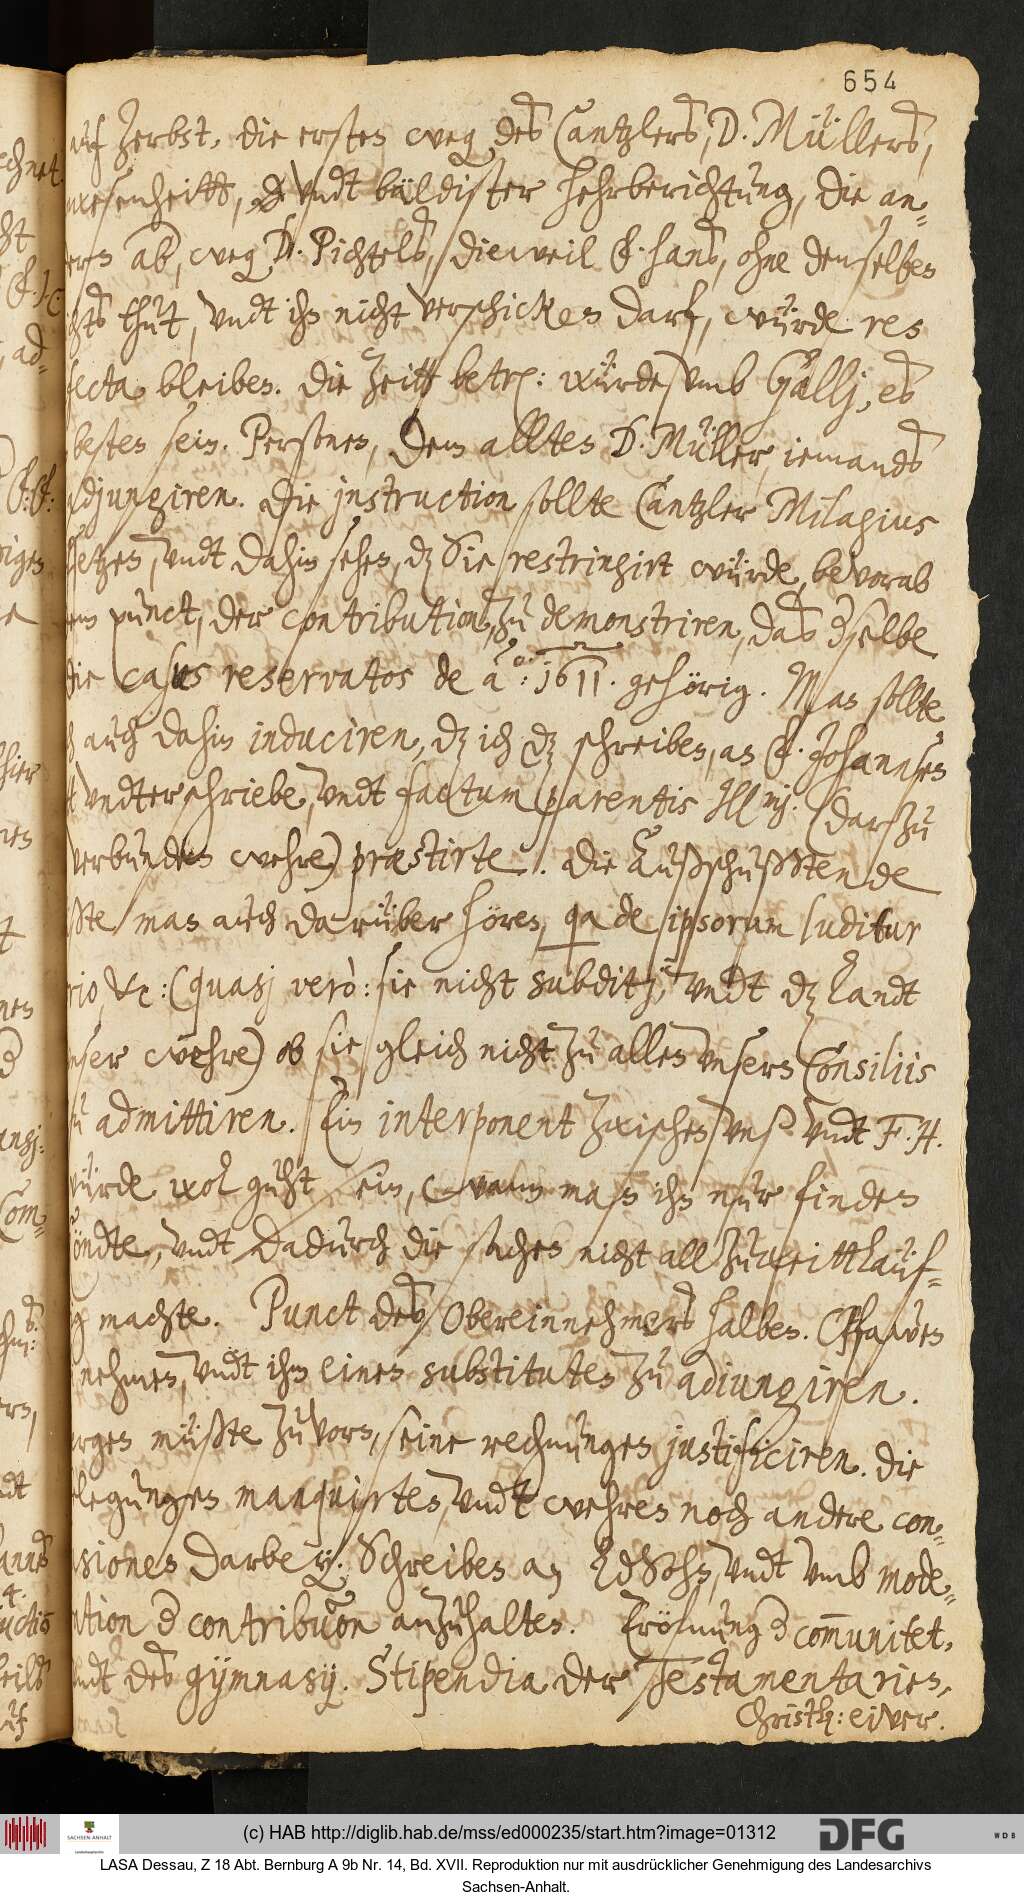 654
auf Zerbst, die ersten weg, des Cantzlers, D. Müllers,
anwesenheitt, vndt bäldister herberichtung, die an-
dern ab, weg D. Pichtels, dieweil F. Hans, ohne denselben
nichts thut, vndt ihn nicht verschicken darf, würde res
infecta bleiben. Die Zeitt betr: würde vmb Gallj, es
besten sein. Personen, dem allten D. Müller iemands
adjungiren. Die jnstruction sollte Cantzler Milagius
setzen, vndt dahin sehen, dz Sie restringirt würde, bevorab
punct, der contribution, zu demonstriren, das dselbe
die casus reservatos de ao: 1611. gehörig. Man sollte
auch dahin induciren, dz ich dz schreiben, an F. Johannsen
vndterschriebe, vndt factum parentis Illmj. (darzu
verbunden wehre) præstirte. Die Außschußstende
man auch darüber hören, qa de ipsorum luditur
rio, &c: (quasj verò: sie nicht subditj, vndt dz Landt
vnser wehre) ob sie gleich nicht zu allen vnsern Consiliis
zu admittiren. Ein interponent zwischen vnß vndt F. H.
würde wol guht sein, wann man ihn nur finden
köndte, vndt dadurch die sachen nicht all zu weittläuf-
ig machte. Punct des Obereinnehmers halben.
nehmen, vndt ihm einen substituten zu adiungiren.
müßte zuvorn, seine rechnungen justificiren. Die
belegungen manquirten, vndt wehren noch andere con-
fusiones darbey. Schreiben an vndt vmb mode-
ration d contribuōn anzuhalten. Eröfnung d com̄unitet,
vndt des gymnasij. Stipendia der Testamentarien,
Christh: eiver.
(c) HAB http://diglib.hab.de/mss/ed000235/start.htm?image=01312
SACHSEN-ANHALT
DFG
WDB
LASA Dessau, Z 18 Abt. Bernburg A 9b Nr. 14, Bd. XVII. Reproduktion nur mit ausdrücklicher Genehmigung des Landesarchivs
Sachsen-Anhalt.